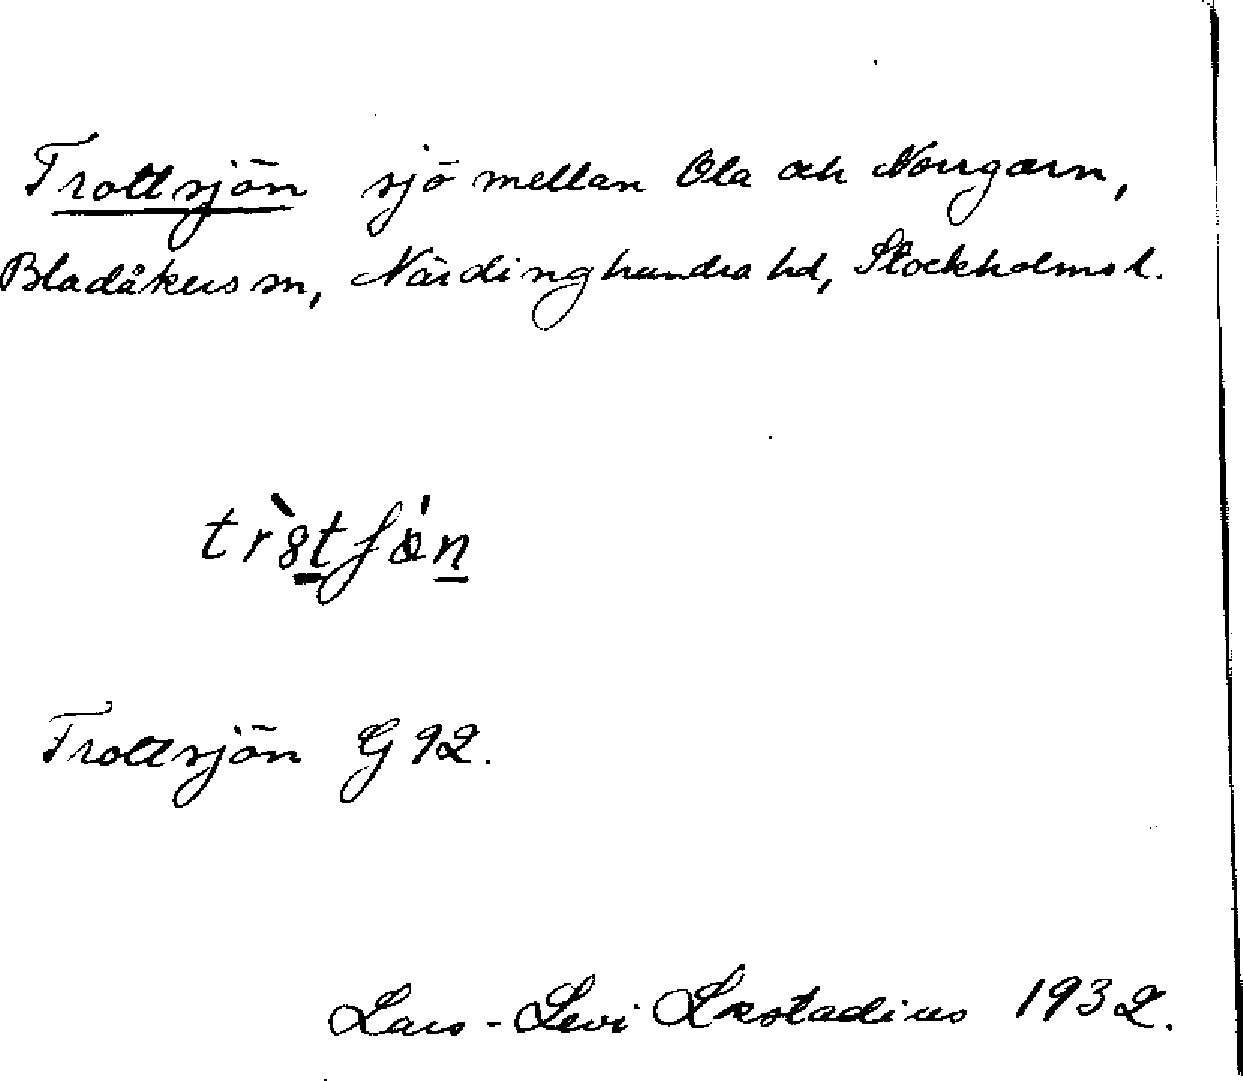 Trottsjön sjö mellan Ola och Norrgarn,
Bladåkers sn, Närdinghundra hd, Stockholms l.
Trottsjön G 92.
Lars-Levi Læstadius 1932.